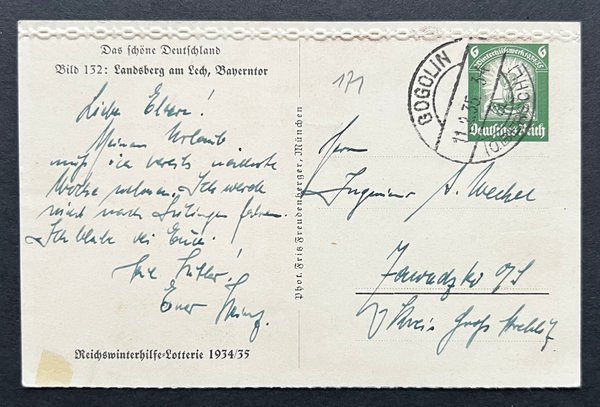 Das schöne Deutschland
Bild 132: Landsberg am Lech, Bayerntor
Liebe Eltern!
Meinen Urlaub
muß ich bereits nächste
Woche nehmen. Ich werde
nicht nach fahren.
Ich bleibe bei Euch.
Heil Hitler!
Euer Heinz
Reichswinterhilfe-Lotterie 1934/35
Phot. Fritz Freudenberger, München
171
GOGOLIN
6 6
Deutsches Reich
Herrn
Ingenieur A. Wechel
Zawadzki O/S
Kreis Groß Strehlitz